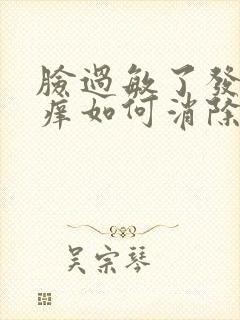 臉過敏了發
痒如何消除
吴宗琴